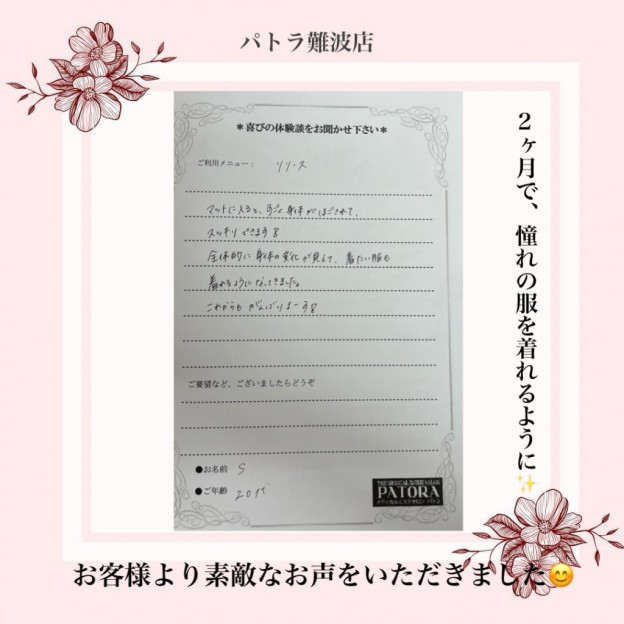 パトラ難波店
2ヶ月で、憧れの服を着れるように✨
＊喜びの体験談をお聞かせ下さい＊
ご利用メニュー： リリース
マットに入ると、すごく身体がほぐされて、
スッキリできます♪
全体的に身体の変化が見えて、着たい服も
着れるようになってきました。
これからもがんばりまーす♪
ご要望など、ございましたらどうぞ
●お名前 S
●ご年齢 20代
THE MEDICAL ESTHE SALON
PATORA
メディカルエステサロン パトラ
お客様より素敵なお声をいただきました😊